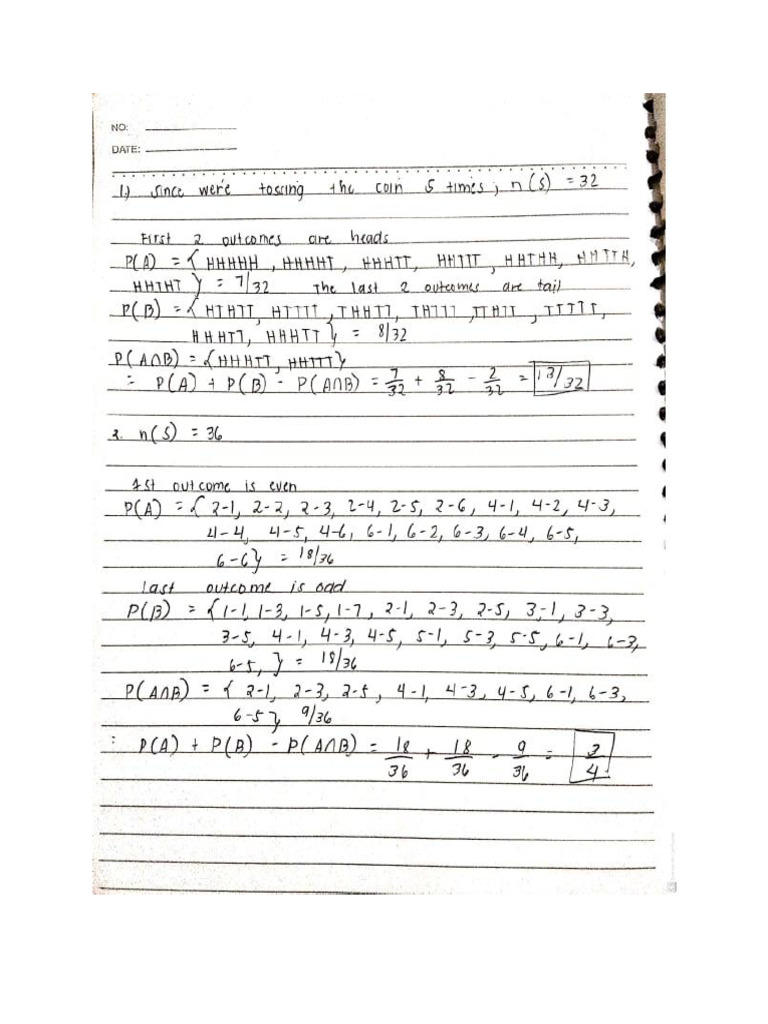 NO:
DATE:
1.) Since we're tossing the coin 5 times, n(S) = 32
First 2 outcomes are heads
P(A) = { HHHHH, HHHHT, HHHTT, HHTTT, HHTHH, HHTTH,
HHTHT } = 7/32 The last 2 outcomes are tail
P(B) = { HTHTT, HTTTT, THHTT, THTTT, TTHTT, TTTTT,
HHHTT, HHHTT } = 8/32
P(A∩B) = { HHHTT, HHTTT }
= P(A) + P(B) - P(A∩B) = 7/32 + 8/32 - 2/32 = 13/32
2. n(S) = 36
1st outcome is even
P(A) = { 2-1, 2-2, 2-3, 2-4, 2-5, 2-6, 4-1, 4-2, 4-3,
4-4, 4-5, 4-6, 6-1, 6-2, 6-3, 6-4, 6-5,
6-6 } = 18/36
last outcome is odd
P(B) = { 1-1, 1-3, 1-5, 1-7, 2-1, 2-3, 2-5, 3-1, 3-3,
3-5, 4-1, 4-3, 4-5, 5-1, 5-3, 5-5, 6-1, 6-3,
6-5, } = 18/36
P(A∩B) = { 2-1, 2-3, 2-5, 4-1, 4-3, 4-5, 6-1, 6-3,
6-5 } 9/36
∴ P(A) + P(B) - P(A∩B) = 18/36 + 18/36 - 9/36 = 3/4